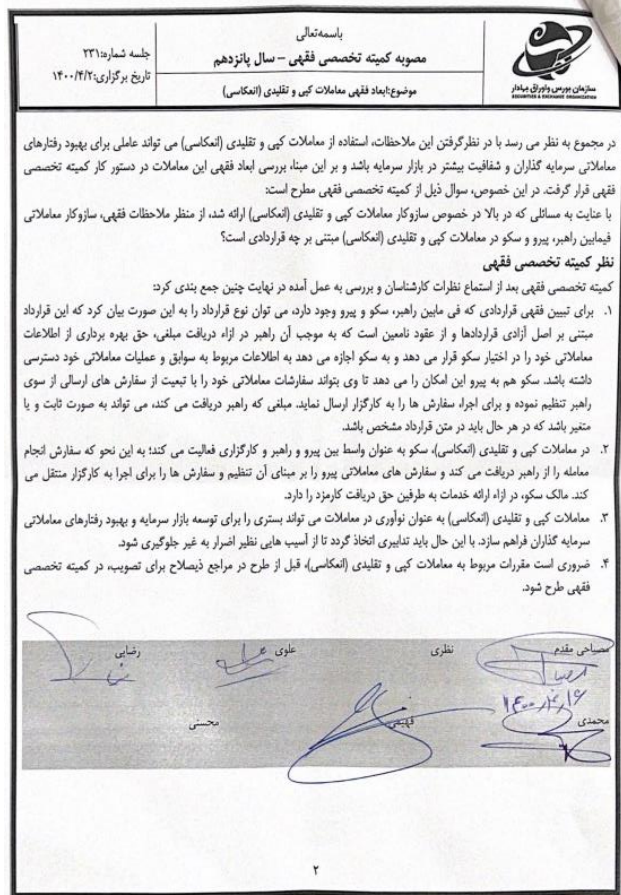 باسمه‌تعالی
مصوبه کمیته تخصصی فقهی – سال پانزدهم
جلسه شماره:۲۳۱
تاریخ برگزاری:۱۴۰۰/۴/۲
موضوع:ابعاد فقهی معاملات کپی و تقلیدی (انعکاسی)
سازمان بورس و اوراق بهادار
SECURITIES & EXCHANGE ORGANIZATION
در مجموع به نظر می رسد با در نظرگرفتن این ملاحظات، استفاده از معاملات کپی و تقلیدی (انعکاسی) می تواند عاملی برای بهبود رفتارهای
معاملاتی سرمایه گذاران و شفافیت بیشتر در بازار سرمایه باشد و بر این مبنا، بررسی ابعاد فقهی این معاملات در دستور کار کمیته تخصصی
فقهی قرار گرفت. در این خصوص، سوال ذیل از کمیته تخصصی فقهی مطرح است:
با عنایت به مسائلی که در بالا در خصوص سازوکار معاملات کپی و تقلیدی (انعکاسی) ارائه شد، از منظر ملاحظات فقهی، سازوکار معاملاتی
فیمابین راهبر، پیرو و سکو در معاملات کپی و تقلیدی (انعکاسی) مبتنی بر چه قراردادی است؟
نظر کمیته تخصصی فقهی
کمیته تخصصی فقهی بعد از استماع نظرات کارشناسان و بررسی به عمل آمده در نهایت چنین جمع بندی کرد:
۱. برای تبیین فقهی قراردادی که فی مابین راهبر، سکو و پیرو وجود دارد، می توان نوع قرارداد را به این صورت بیان کرد که این قرارداد
مبتنی بر اصل آزادی قراردادها و از عقود نامعین است که به موجب آن راهبر در ازاء دریافت مبلغی، حق بهره برداری از اطلاعات
معاملاتی خود را در اختیار سکو قرار می دهد و به سکو اجازه می دهد به اطلاعات مربوط به سوابق و عملیات معاملاتی خود دسترسی
داشته باشد. سکو هم به پیرو این امکان را می دهد تا وی بتواند سفارشات معاملاتی خود را با تبعیت از سفارش های ارسالی از سوی
راهبر تنظیم نموده و برای اجرا، سفارش ها را به کارگزار ارسال نماید. مبلغی که راهبر دریافت می کند، می تواند به صورت ثابت و یا
متغیر باشد که در هر حال باید در متن قرارداد مشخص باشد.
۲. در معاملات کپی و تقلیدی (انعکاسی)، سکو به عنوان واسط بین پیرو و راهبر و کارگزاری فعالیت می کند؛ به این نحو که سفارش انجام
معامله را از راهبر دریافت می کند و سفارش های معاملاتی پیرو را بر مبنای آن تنظیم و سفارش ها را برای اجرا به کارگزار منتقل می
کند. مالک سکو، در ازاء ارائه خدمات به طرفین حق دریافت کارمزد را دارد.
۳. معاملات کپی و تقلیدی (انعکاسی) به عنوان نوآوری در معاملات می تواند بستری را برای توسعه بازار سرمایه و بهبود رفتارهای معاملاتی
سرمایه گذاران فراهم سازد. با این حال باید تدابیری اتخاذ گردد تا از آسیب هایی نظیر اضرار به غیر جلوگیری شود.
۴. ضروری است مقررات مربوط به معاملات کپی و تقلیدی (انعکاسی)، قبل از طرح در مراجع ذیصلاح برای تصویب، در کمیته تخصصی
فقهی طرح شود.
مصباحی مقدم نظری علوی رضایی
۱۴۰۰/۴/۱۶
محمدی فهیمی محسنی
۲